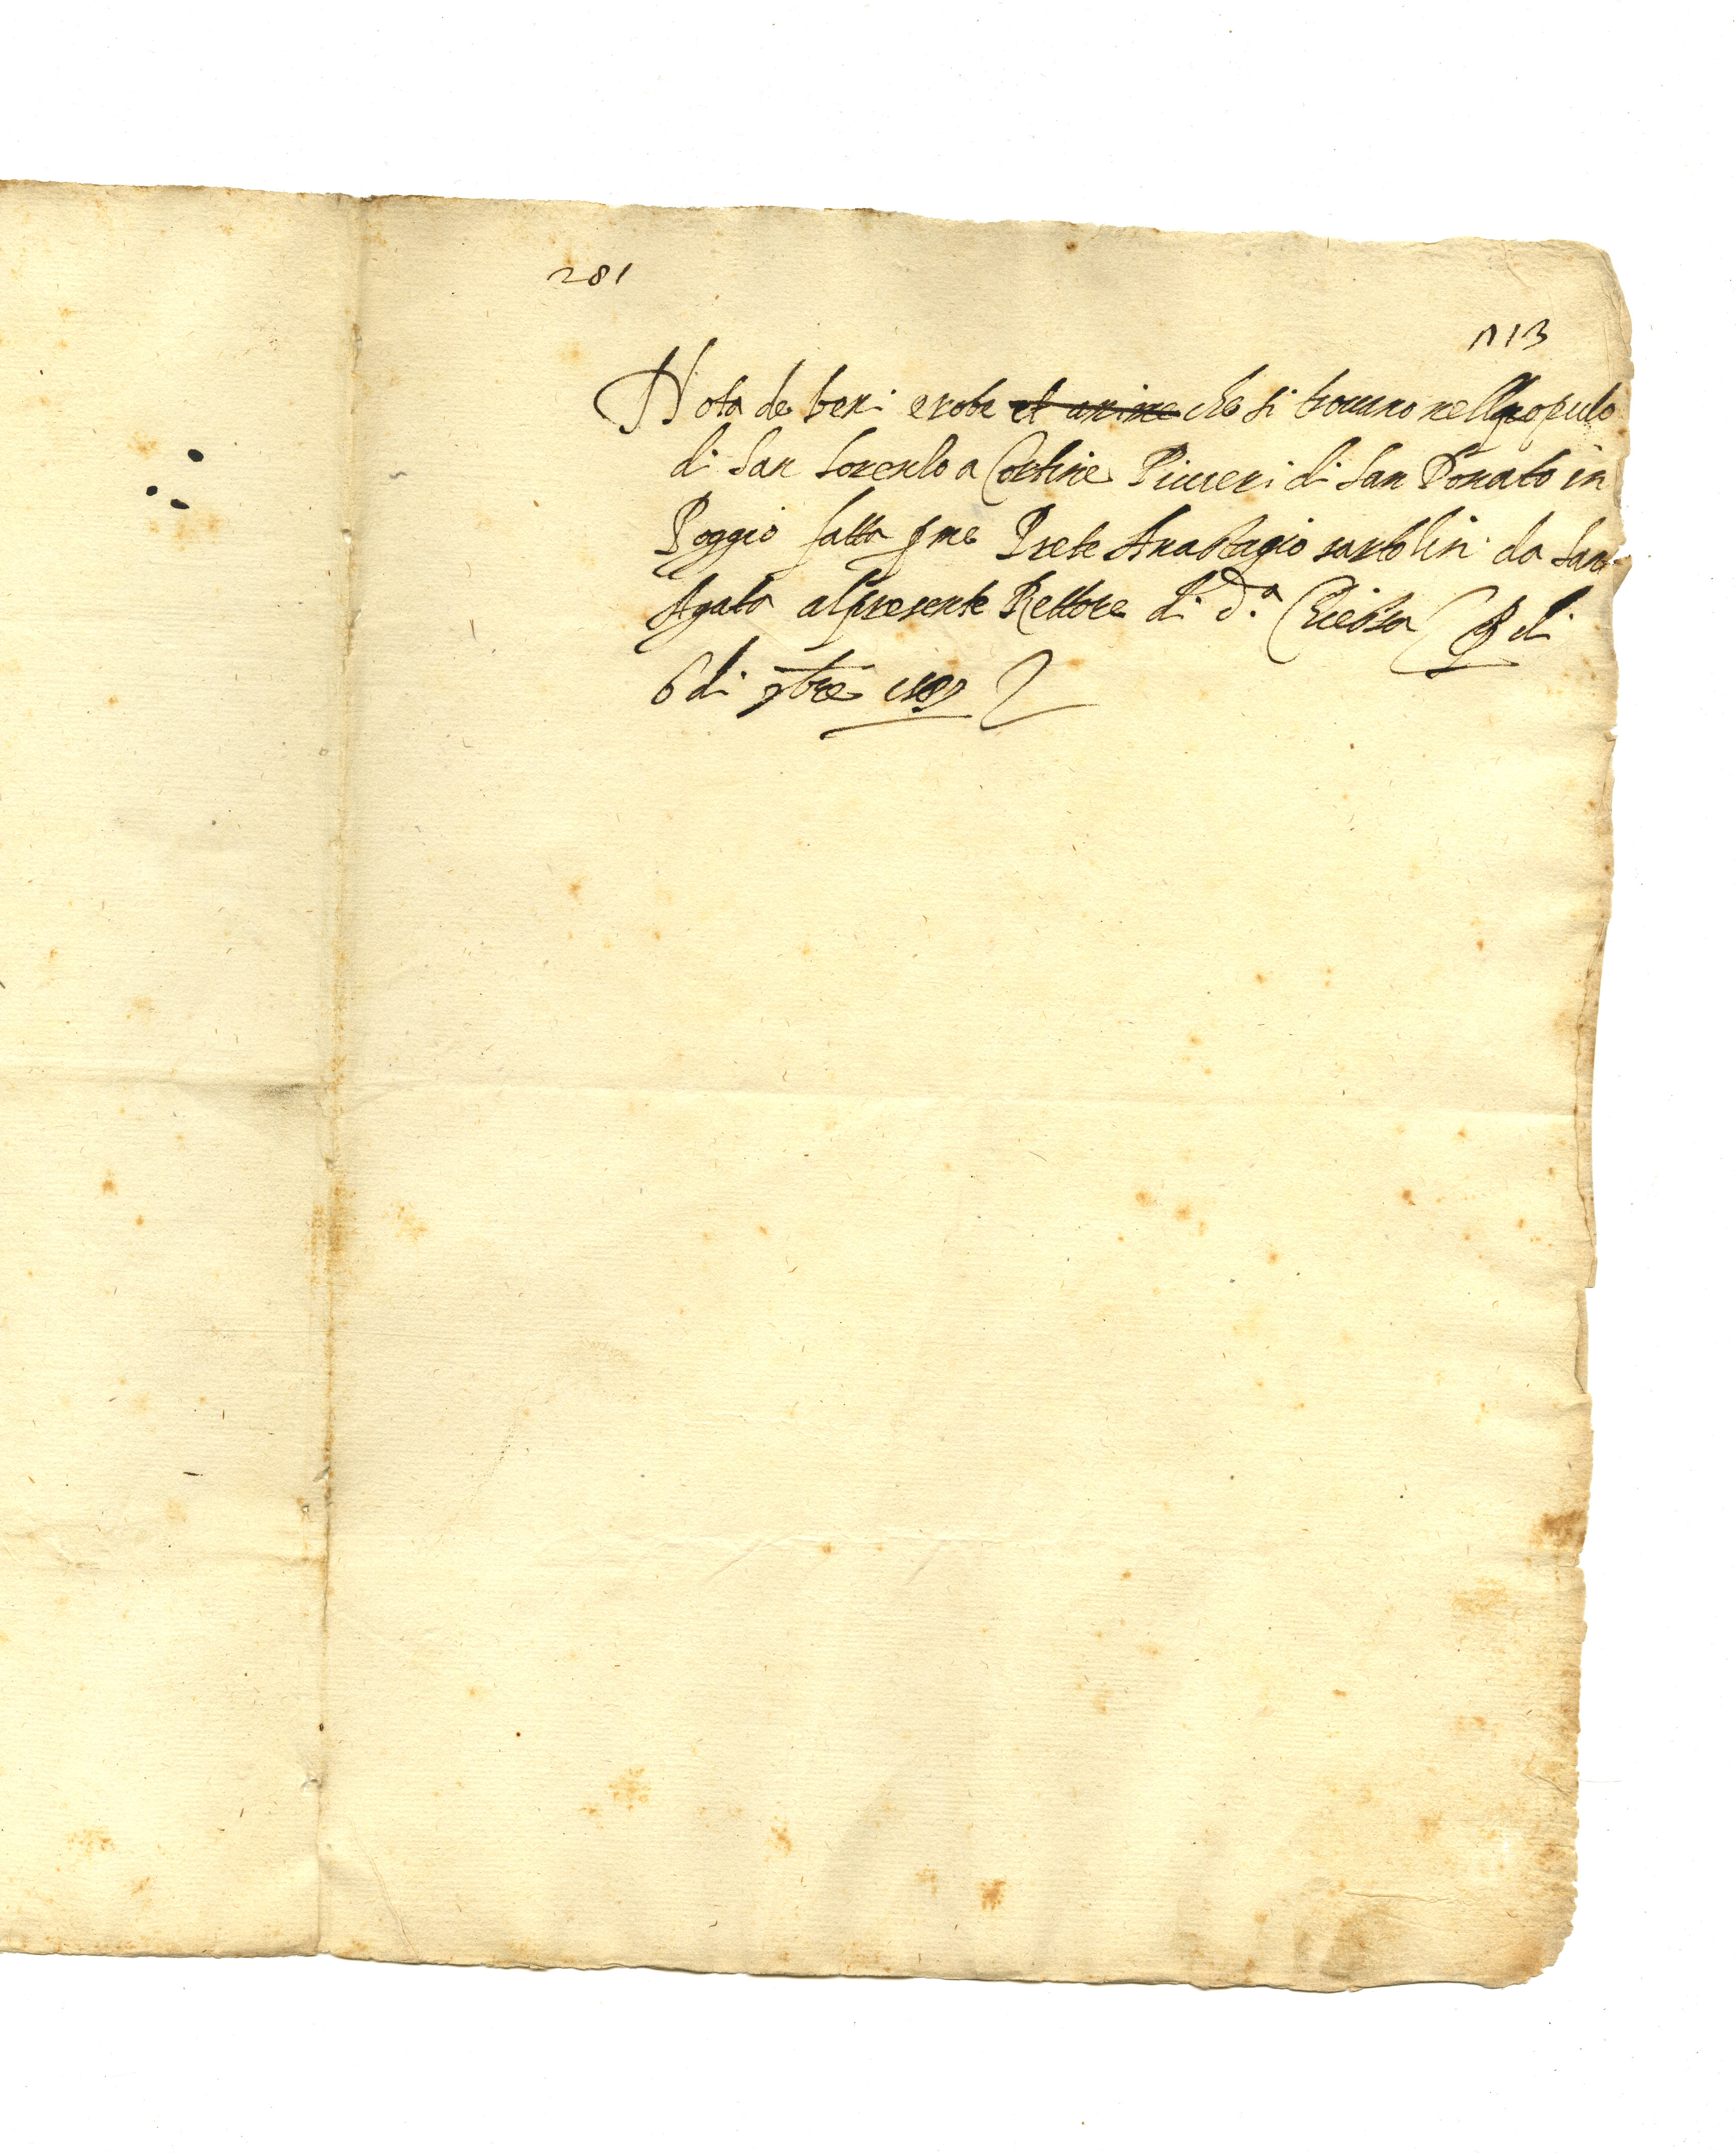 281
n 13
Nota de beni e robe et anime che si trovano nell popolo
di San Lorenzo a Cortine Pivieri di San Donato in
Poggio fatta p me Prete Anastagio da San
Agata al presente Rettore di d.ª Chiesa di
6 di 9bre